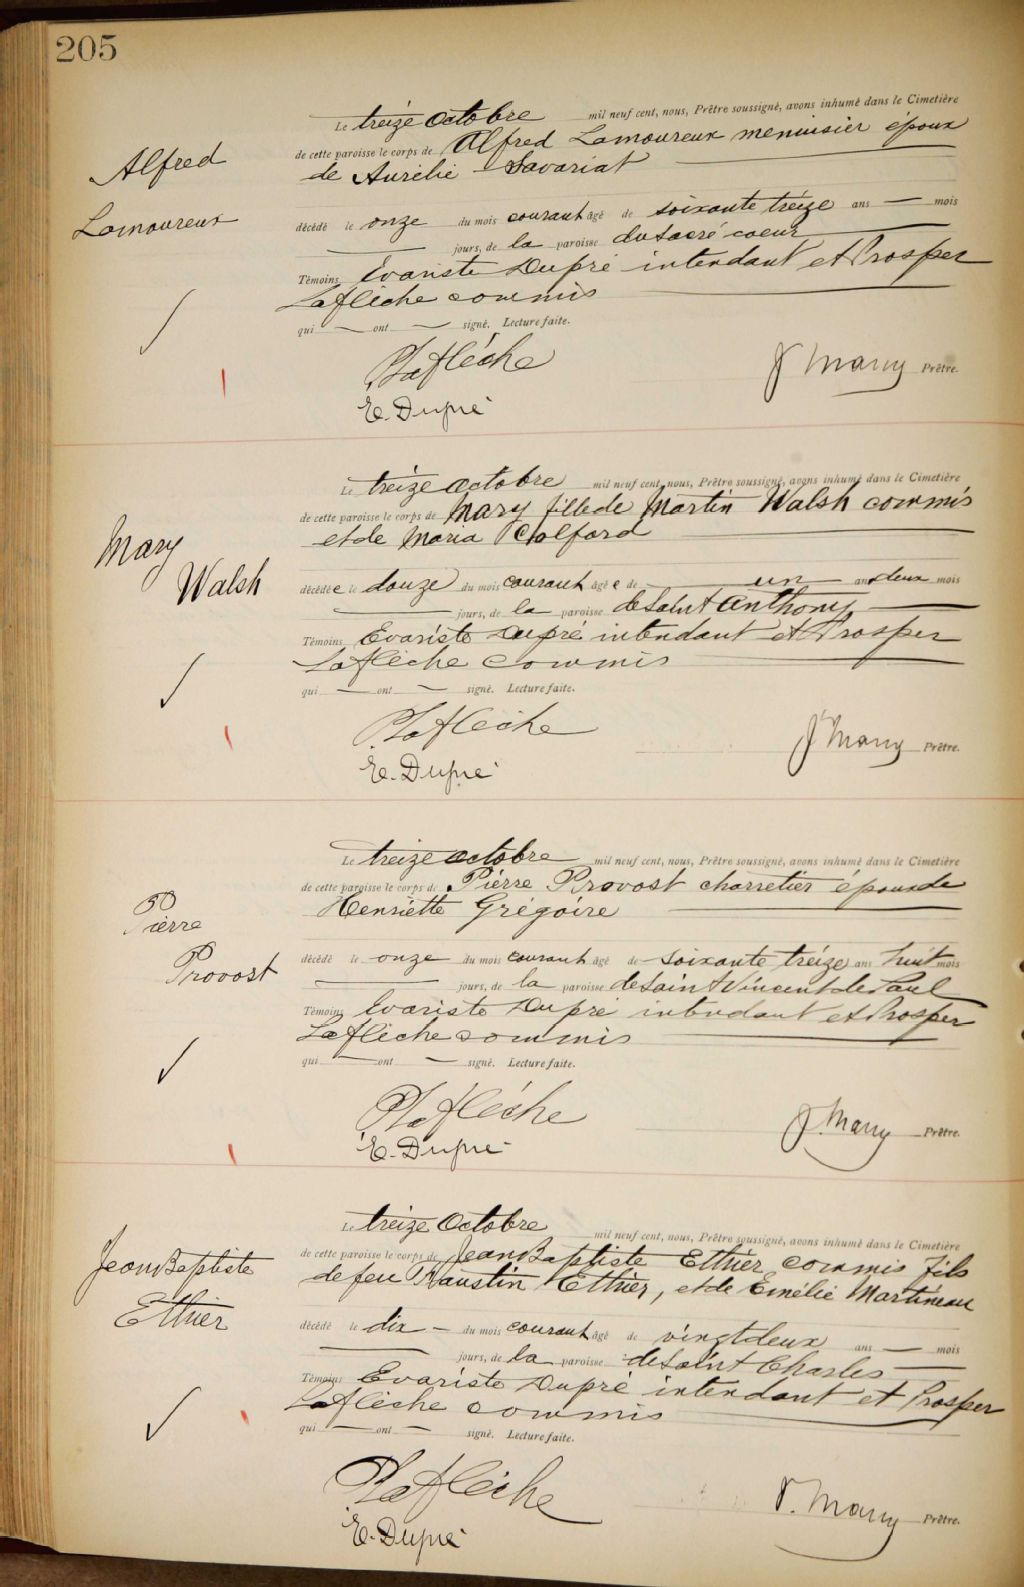 205
Le treize octobre mil neuf cent, nous, Prêtre soussigné, avons inhumé dans le Cimetière
de cette paroisse le corps de Alfred Lamoureux menuisier époux
de Aurélie Savariat
Alfred
Lamoureux
décédé le onze du mois courant âgé de soixante treize ans — mois
— jours, de la paroisse du Sacré coeur
Témoins Evariste Dupré intendant et Prosper
Laflèche commis
qui — ont — signé. Lecture faite.
PLaflèche
J Marry Prêtre.
E. Dupré
Le treize octobre mil neuf cent, nous, Prêtre soussigné, avons inhumé dans le Cimetière
de cette paroisse le corps de Mary fille de Martin Walsh commis
et de Maria
Mary
Walsh
décédée le douze du mois courant âgée de un an deux mois
— jours, de la paroisse de Saint Anthony
Témoins Evariste Dupré intendant et Prosper
Laflèche commis
qui — ont — signé. Lecture faite.
PLaflèche
J Marry Prêtre.
E. Dupré
Le treize octobre mil neuf cent, nous, Prêtre soussigné, avons inhumé dans le Cimetière
de cette paroisse le corps de Pierre Provost charretier époux de
Henriette Grégoire
Pierre
Provost
décédé le onze du mois courant âgé de soixante treize ans huit mois
— jours, de la paroisse de Saint Vincent de Paul
Témoins Evariste Dupré intendant et Prosper
Laflèche commis
qui — ont — signé. Lecture faite.
PLaflèche
J. Marry Prêtre.
E. Dupré
Le treize Octobre mil neuf cent, nous, Prêtre soussigné, avons inhumé dans le Cimetière
de cette paroisse le corps de Jean Baptiste Ethier commis fils
de feu Faustin Ethier, et de Emélie Martineau
Jean Baptiste
Ethier
décédé le dix — du mois courant âgé de vingt deux ans — mois
— jours, de la paroisse de Saint Charles
Témoins Evariste Dupré intendant et Prosper
Laflèche commis
qui — ont — signé. Lecture faite.
PLaflèche
J. Marry Prêtre.
E. Dupré